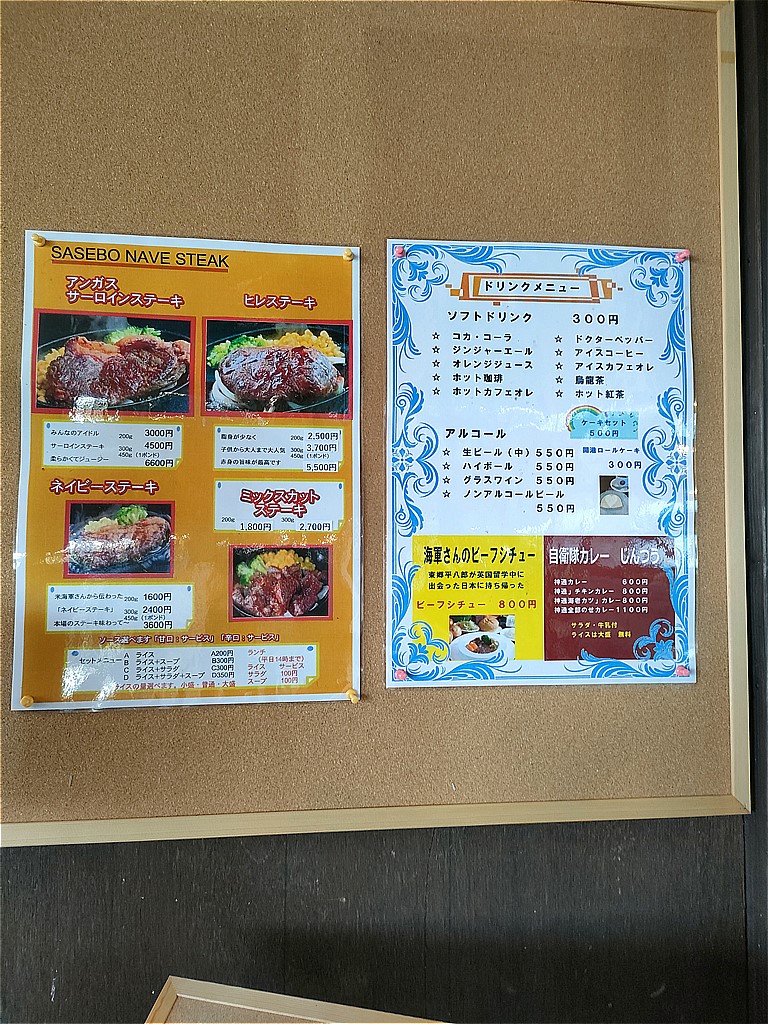 SASEBO NAVE STEAK
アンガス
サーロインステーキ
ヒレステーキ
みんなのアイドル 200g 3000円
サーロインステーキ 300g 4500円
柔らかくてジュージー 450g (1ポンド) 6600円
脂身が少なく 200g 2,500円
子供から大人まで大人気 300g 3,700円
赤身の旨味が最高です 450g (1ポンド) 5,500円
ネイビーステーキ
ミックスカット
ステーキ
200g 1,800円 300g 2,700円
米海軍さんから伝わった 200g 1600円
「ネイビーステーキ」 300g 2400円
本場のステーキ味わって〜 450g (1ポンド) 3600円
ソース選べます「甘口:サービス」「辛口:サービス」
セットメニュー
A ライス A200円
B ライス+スープ B300円
C ライス+サラダ C300円
D ライス+サラダ+スープ D350円
ランチ
(平日14時まで)
ライス サービス
サラダ 100円
スープ 100円
ライスの量選べます。小盛・普通・大盛
ドリンクメニュー
ソフトドリンク 300円
☆ コカ・コーラ
☆ ジンジャーエール
☆ オレンジジュース
☆ ホット珈琲
☆ ホットカフェオレ
☆ ドクターペッパー
☆ アイスコーヒー
☆ アイスカフェオレ
☆ 烏龍茶
☆ ホット紅茶
ケーキセット
500円
アルコール
☆ 生ビール(中) 550円
☆ ハイボール 550円
☆ グラスワイン 550円
☆ ノンアルコールビール
550円
開港ロールケーキ
300円
海軍さんのビーフシチュー
東郷平八郎が英国留学中に
出会った日本に持ち帰った
ビーフシチュー 800円
自衛隊カレー じんつう
神通カレー 600円
神通チキンカレー 800円
神通海老カツカレー 800円
神通全部のせカレー 1100円
サラダ・牛乳付
ライスは大盛 無料